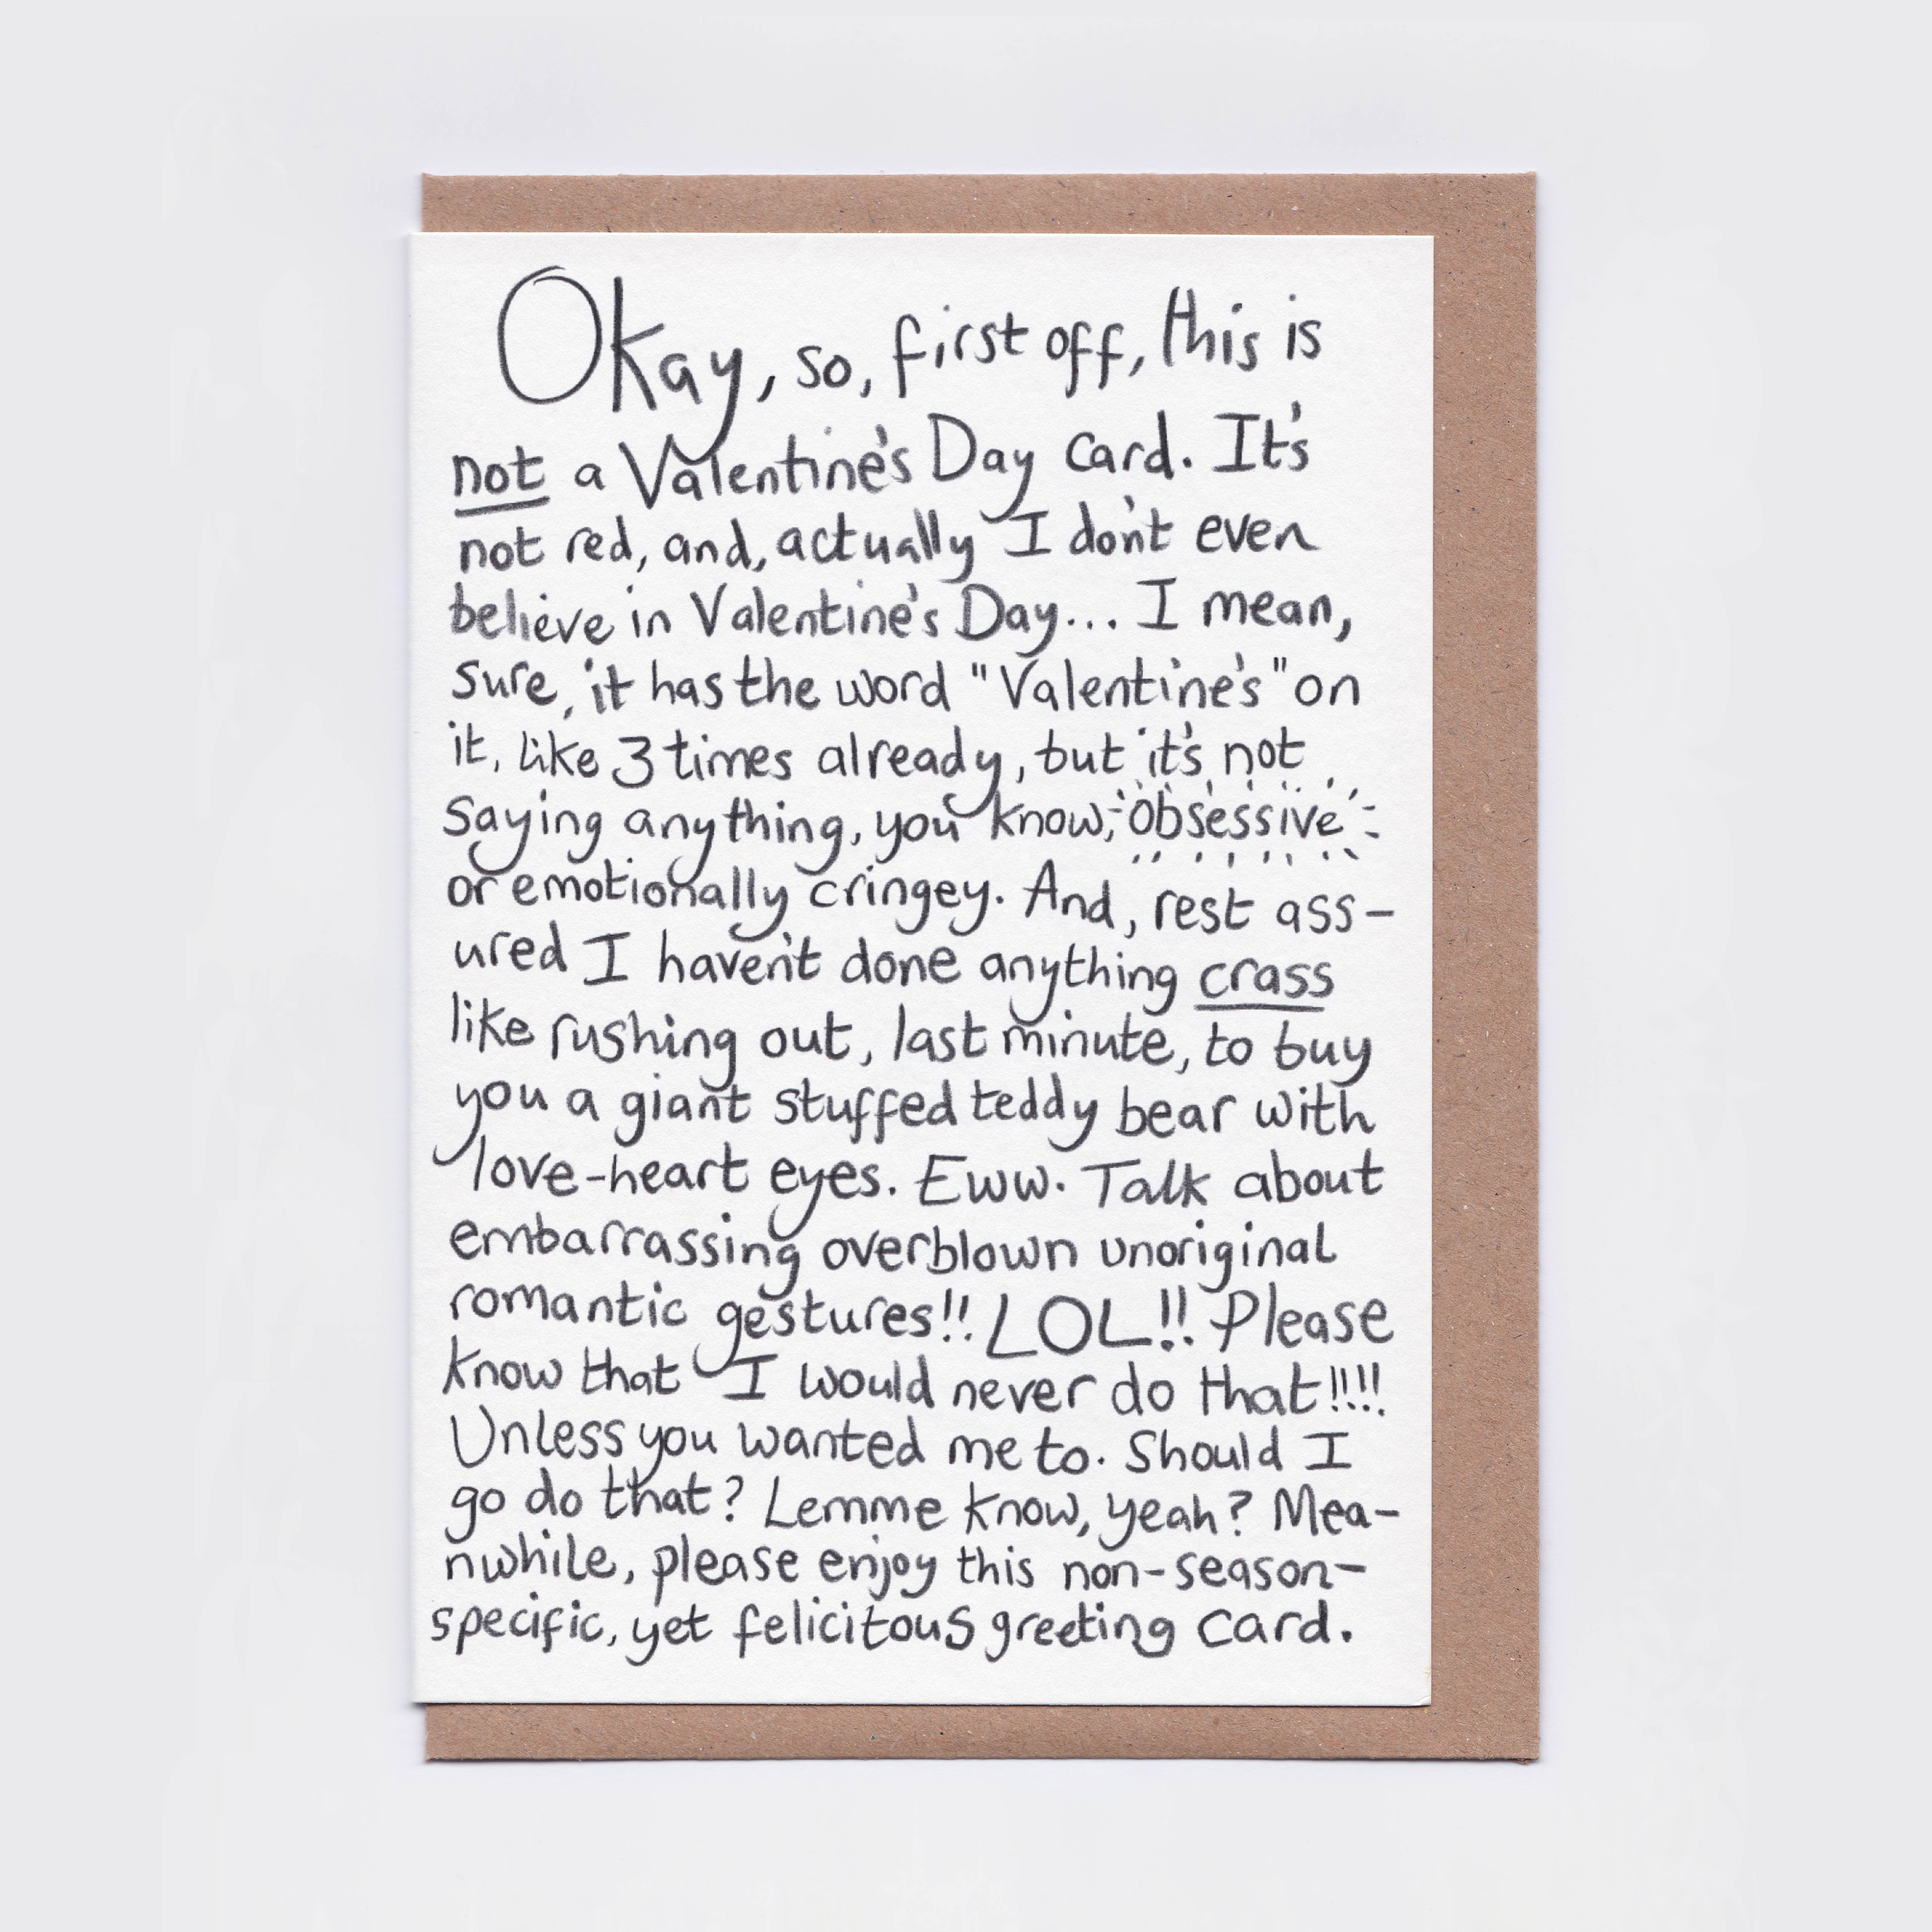 Okay, so, first off, this is
not a Valentine's Day card. It's
not red, and, actually I don't even
believe in Valentine's Day... I mean,
sure, it has the word "Valentine's" on
it, like 3 times already, but it's not
saying anything, you know, obsessive
or emotionally cringey. And, rest ass-
ured I haven't done anything crass
like rushing out, last minute, to buy
you a giant stuffed teddy bear with
love-heart eyes. Eww. Talk about
embarrassing overblown unoriginal
romantic gestures!! LOL!! Please
know that I would never do that!!!!
Unless you wanted me to. Should I
go do that? Lemme know, yeah? Mea-
nwhile, please enjoy this non-season-
specific, yet felicitous greeting card.